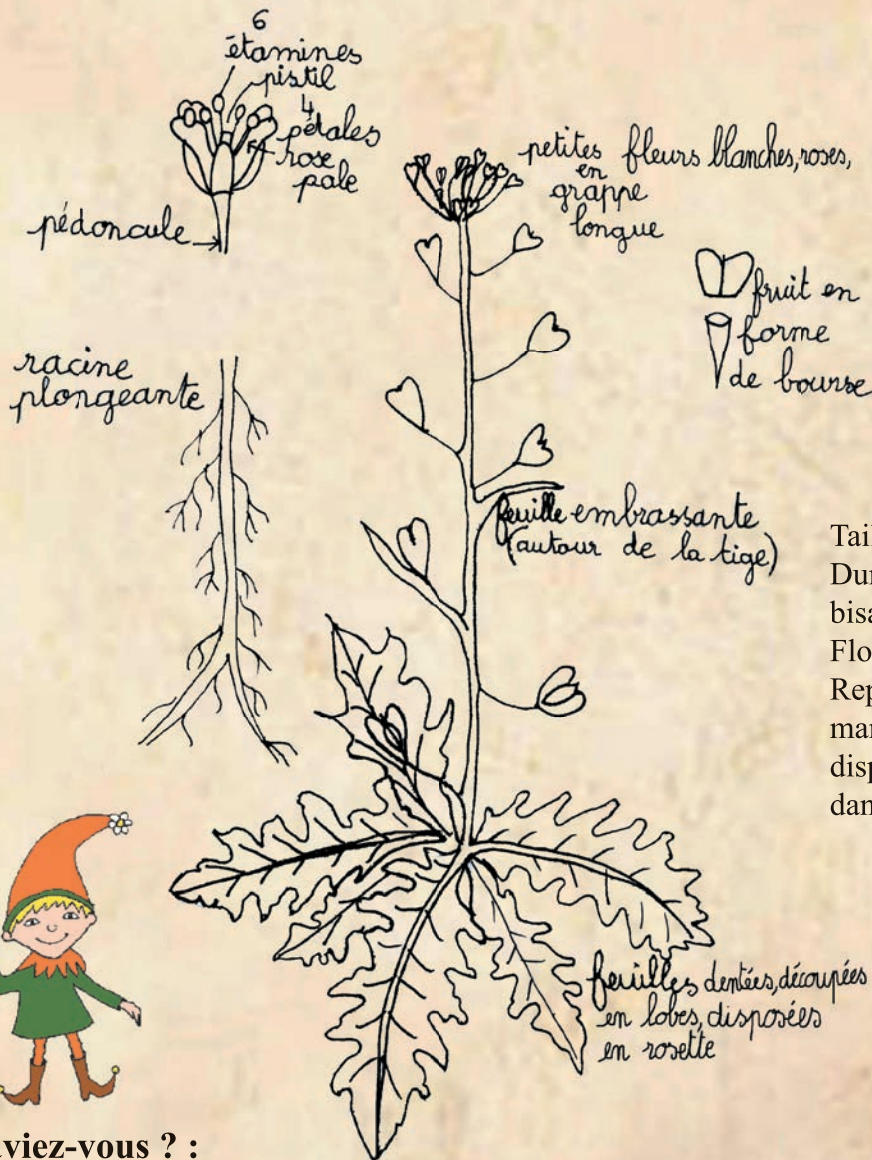 6
étamines
pistil
4
pétales
rose
pale
pédoncule
petites fleurs blanches, roses,
en
grappe
longue
fruit en
forme
de bourse
racine
plongeante
feuille embrassante
(autour de la tige)
Tail
Dur
bisa
Flo
Rep
mar
disp
dan
feuilles dentées, découpées
en lobes, disposées
en rosette
aviez-vous ? :